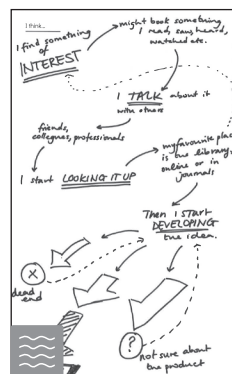 I think...
I find something
of
INTEREST
might book something
I read, saw, heard,
watched etc.
I TALK about it
with others
friends,
collegues, professionals
I start LOOKING IT UP
my favourite place
is the library,
online or in
journals
Then I START
DEVELOPING
the idea.
X
dead
end
?
not sure about
the product